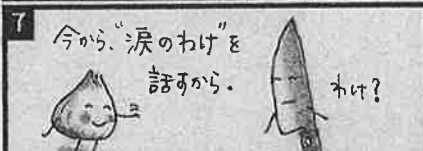 7
今から、“涙のわけ”を
話すから。
わけ?